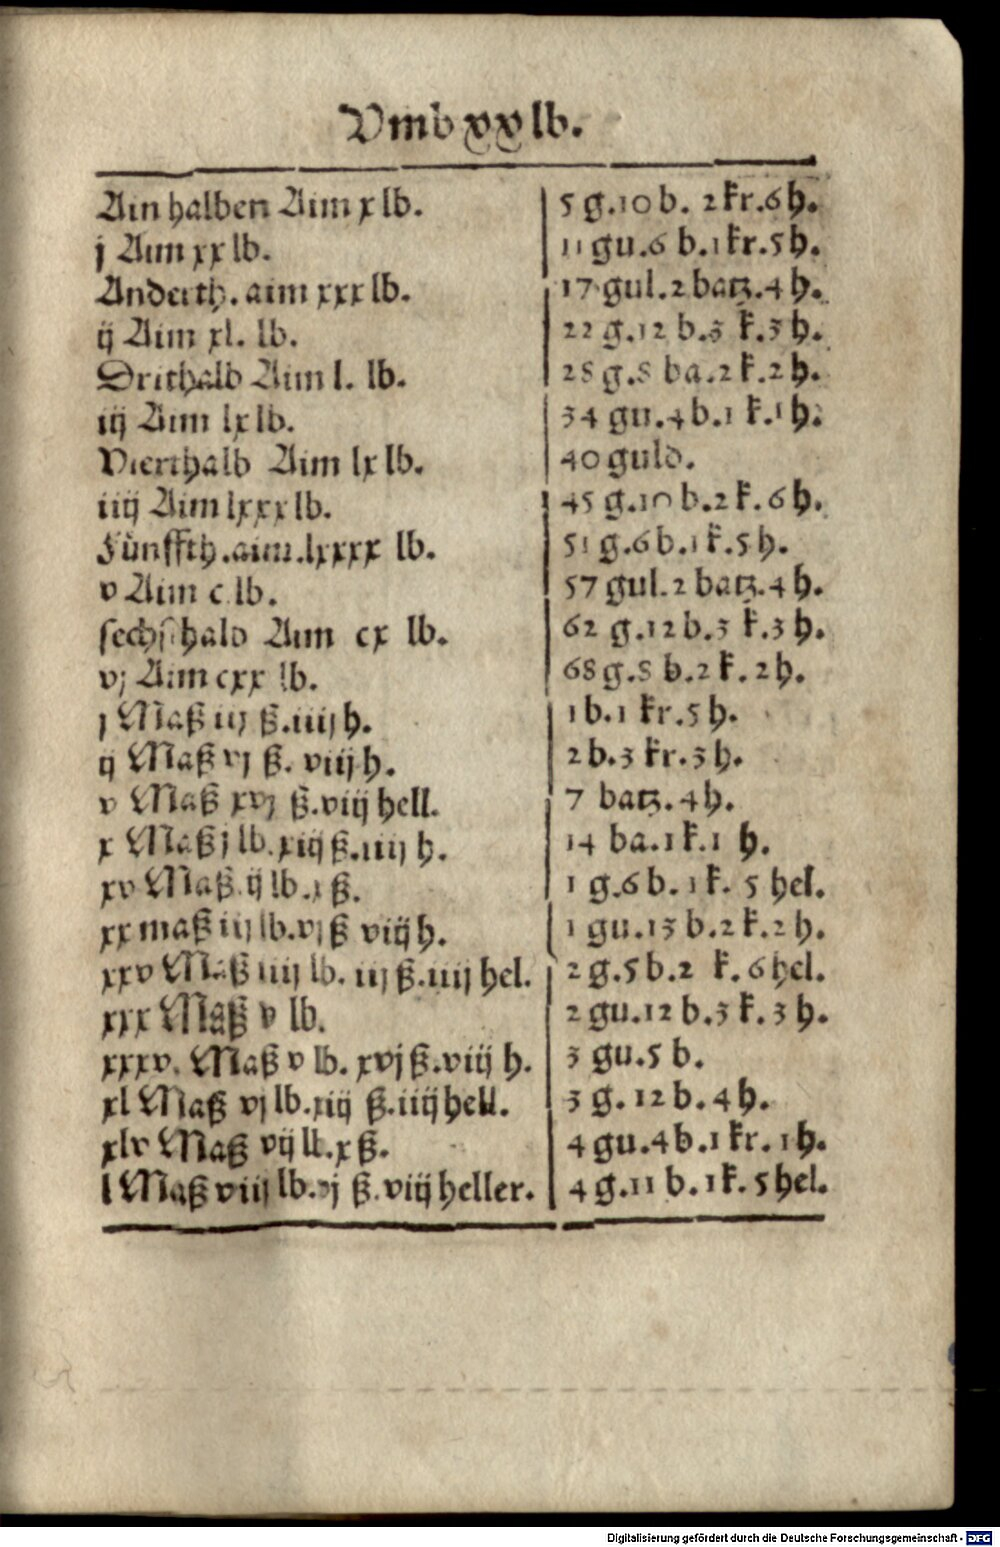 Vmb xx lb.
Ain halben Aim x lb. | 5 g.10 b. 2 kr.6 h.
j Aim xx lb. | 11 gu.6 b.1 kr.5 h.
Anderth. aim xxx lb. | 17 gul.2 batz.4 h.
ij Aim xl. lb. | 22 g.12 b.3 k.3 h.
Drithalb Aim l. lb. | 28 g.8 ba.2 k.2 h.
iij Aim lx lb. | 34 gu.4 b.1 k.1 h.
Vierthalb Aim lx lb. | 40 guld.
iiij Aim lxxx lb. | 45 g.10 b.2 k.6 h.
Fünffth.aim.lxxxx lb. | 51 g.6 b.1 k.5 h.
v Aim c lb. | 57 gul.2 batz.4 h.
sechsthalb Aim cx lb. | 62 g.12 b.3 k.3 h.
vj Aim cxx lb. | 68 g.8 b.2 k.2 h.
j Maß iij ß.iiij h. | 1 b.1 kr.5 h.
ij Maß vj ß. viij h. | 2 b.3 kr.3 h.
v Maß xvj ß.viij hell. | 7 batz.4 h.
x Maß j lb.xiij ß.iiij h. | 14 ba.1 k.1 h.
xv Maß ij lb.x ß. | 1 g.6 b.1 k. 5 hel.
xx maß iij lb.vj ß viij h. | 1 gu.13 b.2 k.2 h.
xxv Maß iiij lb. iij ß.iiij hel. | 2 g.5 b.2 k.6 hel.
xxx Maß v lb. | 2 gu.12 b.3 k.3 h.
xxxv. Maß v lb. xvj ß.viij h. | 3 gu.5 b.
xl Maß vj lb.xiij ß.iiij hell. | 3 g. 12 b.4 h.
xlv Maß vij lb.x ß. | 4 gu.4 b.1 kr.1 h.
l Maß viij lb.vj ß.viij heller. | 4 g.11 b.1 k.5 hel.
Digitalisierung gefördert durch die Deutsche Forschungsgemeinschaft - DFG